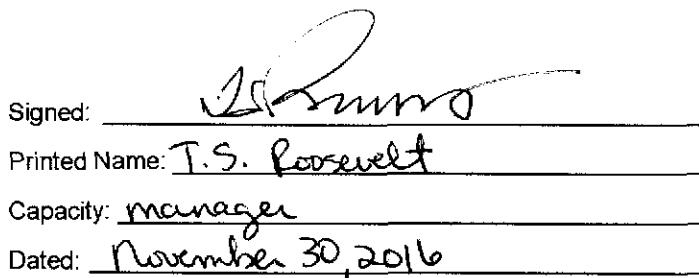 Signed:
Printed Name: T.S. Roosevelt
Capacity: manager
Dated: November 30, 2016